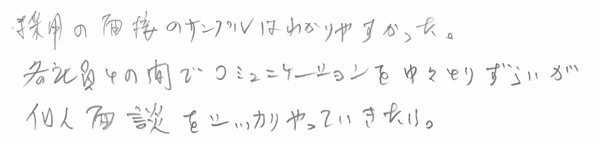 採用の面接のサンプルはわかりやすかった。
各社員との間でコミュニケーションを中々とりずらいが
個人面談をしっかりやっていきたい。